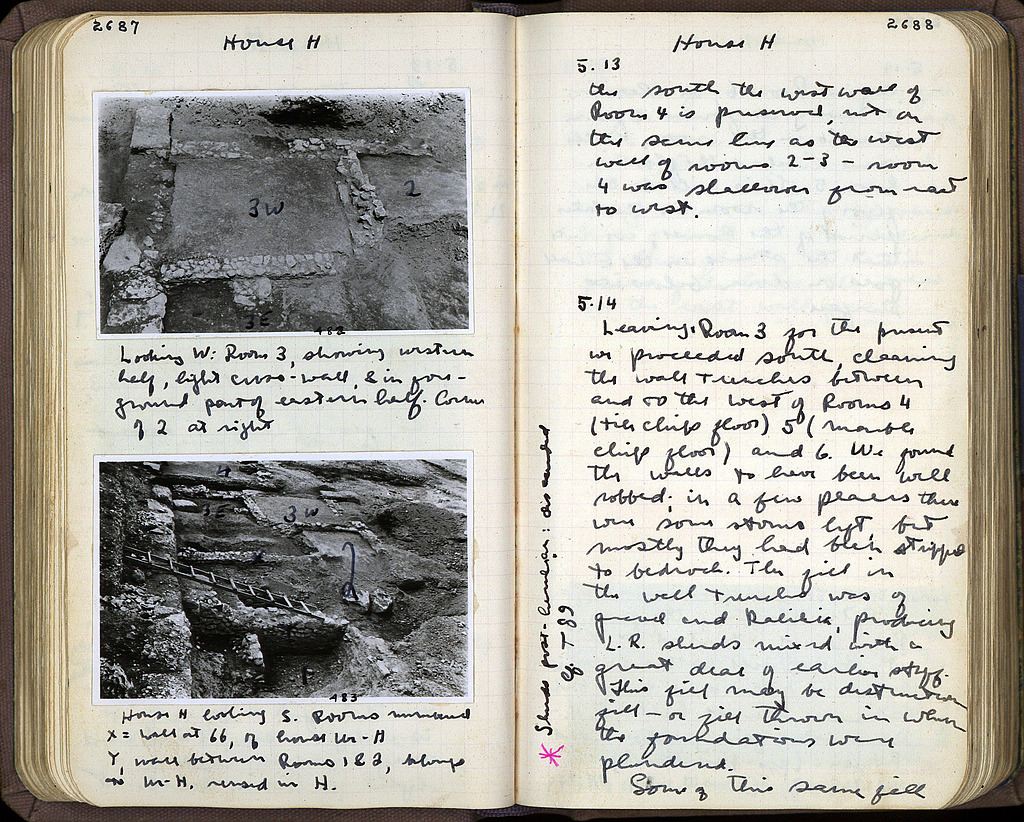 2687
House H
3W
2
3E
482
Looking W: Room 3, showing western
half, light cross-wall, & in fore-
ground part of eastern half. Corner
of 2 at right
4
3E
3W
X
2
1
483
House H looking S. Rooms numbered
X = wall at 66, of house Ur-H
Y, wall between Rooms 1 & 2, belongs
to Ur-H, reused in H.
2688
House H
5.13
the south the west wall of
Room 4 is preserved, not on
the same line as the west
wall of rooms 2-3 – room
4 was shallower from east
to west.
5.14
Leaving Room 3 for the present
we proceeded south, clearing
the wall trenches between
and to the west of Rooms 4
(tile chips floor) 5 (marble
chip floor) and 6. We found
the walls to have been well
robbed; in a few places there
were some stones left, but
mostly they had been stripped
to bedrock. The fill in
the wall trenches was of
gravel and, producing
L.R. sherds mixed with a
great deal of earlier stuff.
This fill may be destruction
fill – or fill thrown in when
the foundations were
plundered.
Some of this same fill
* Sherds post-herulian: discarded
cf. T 89